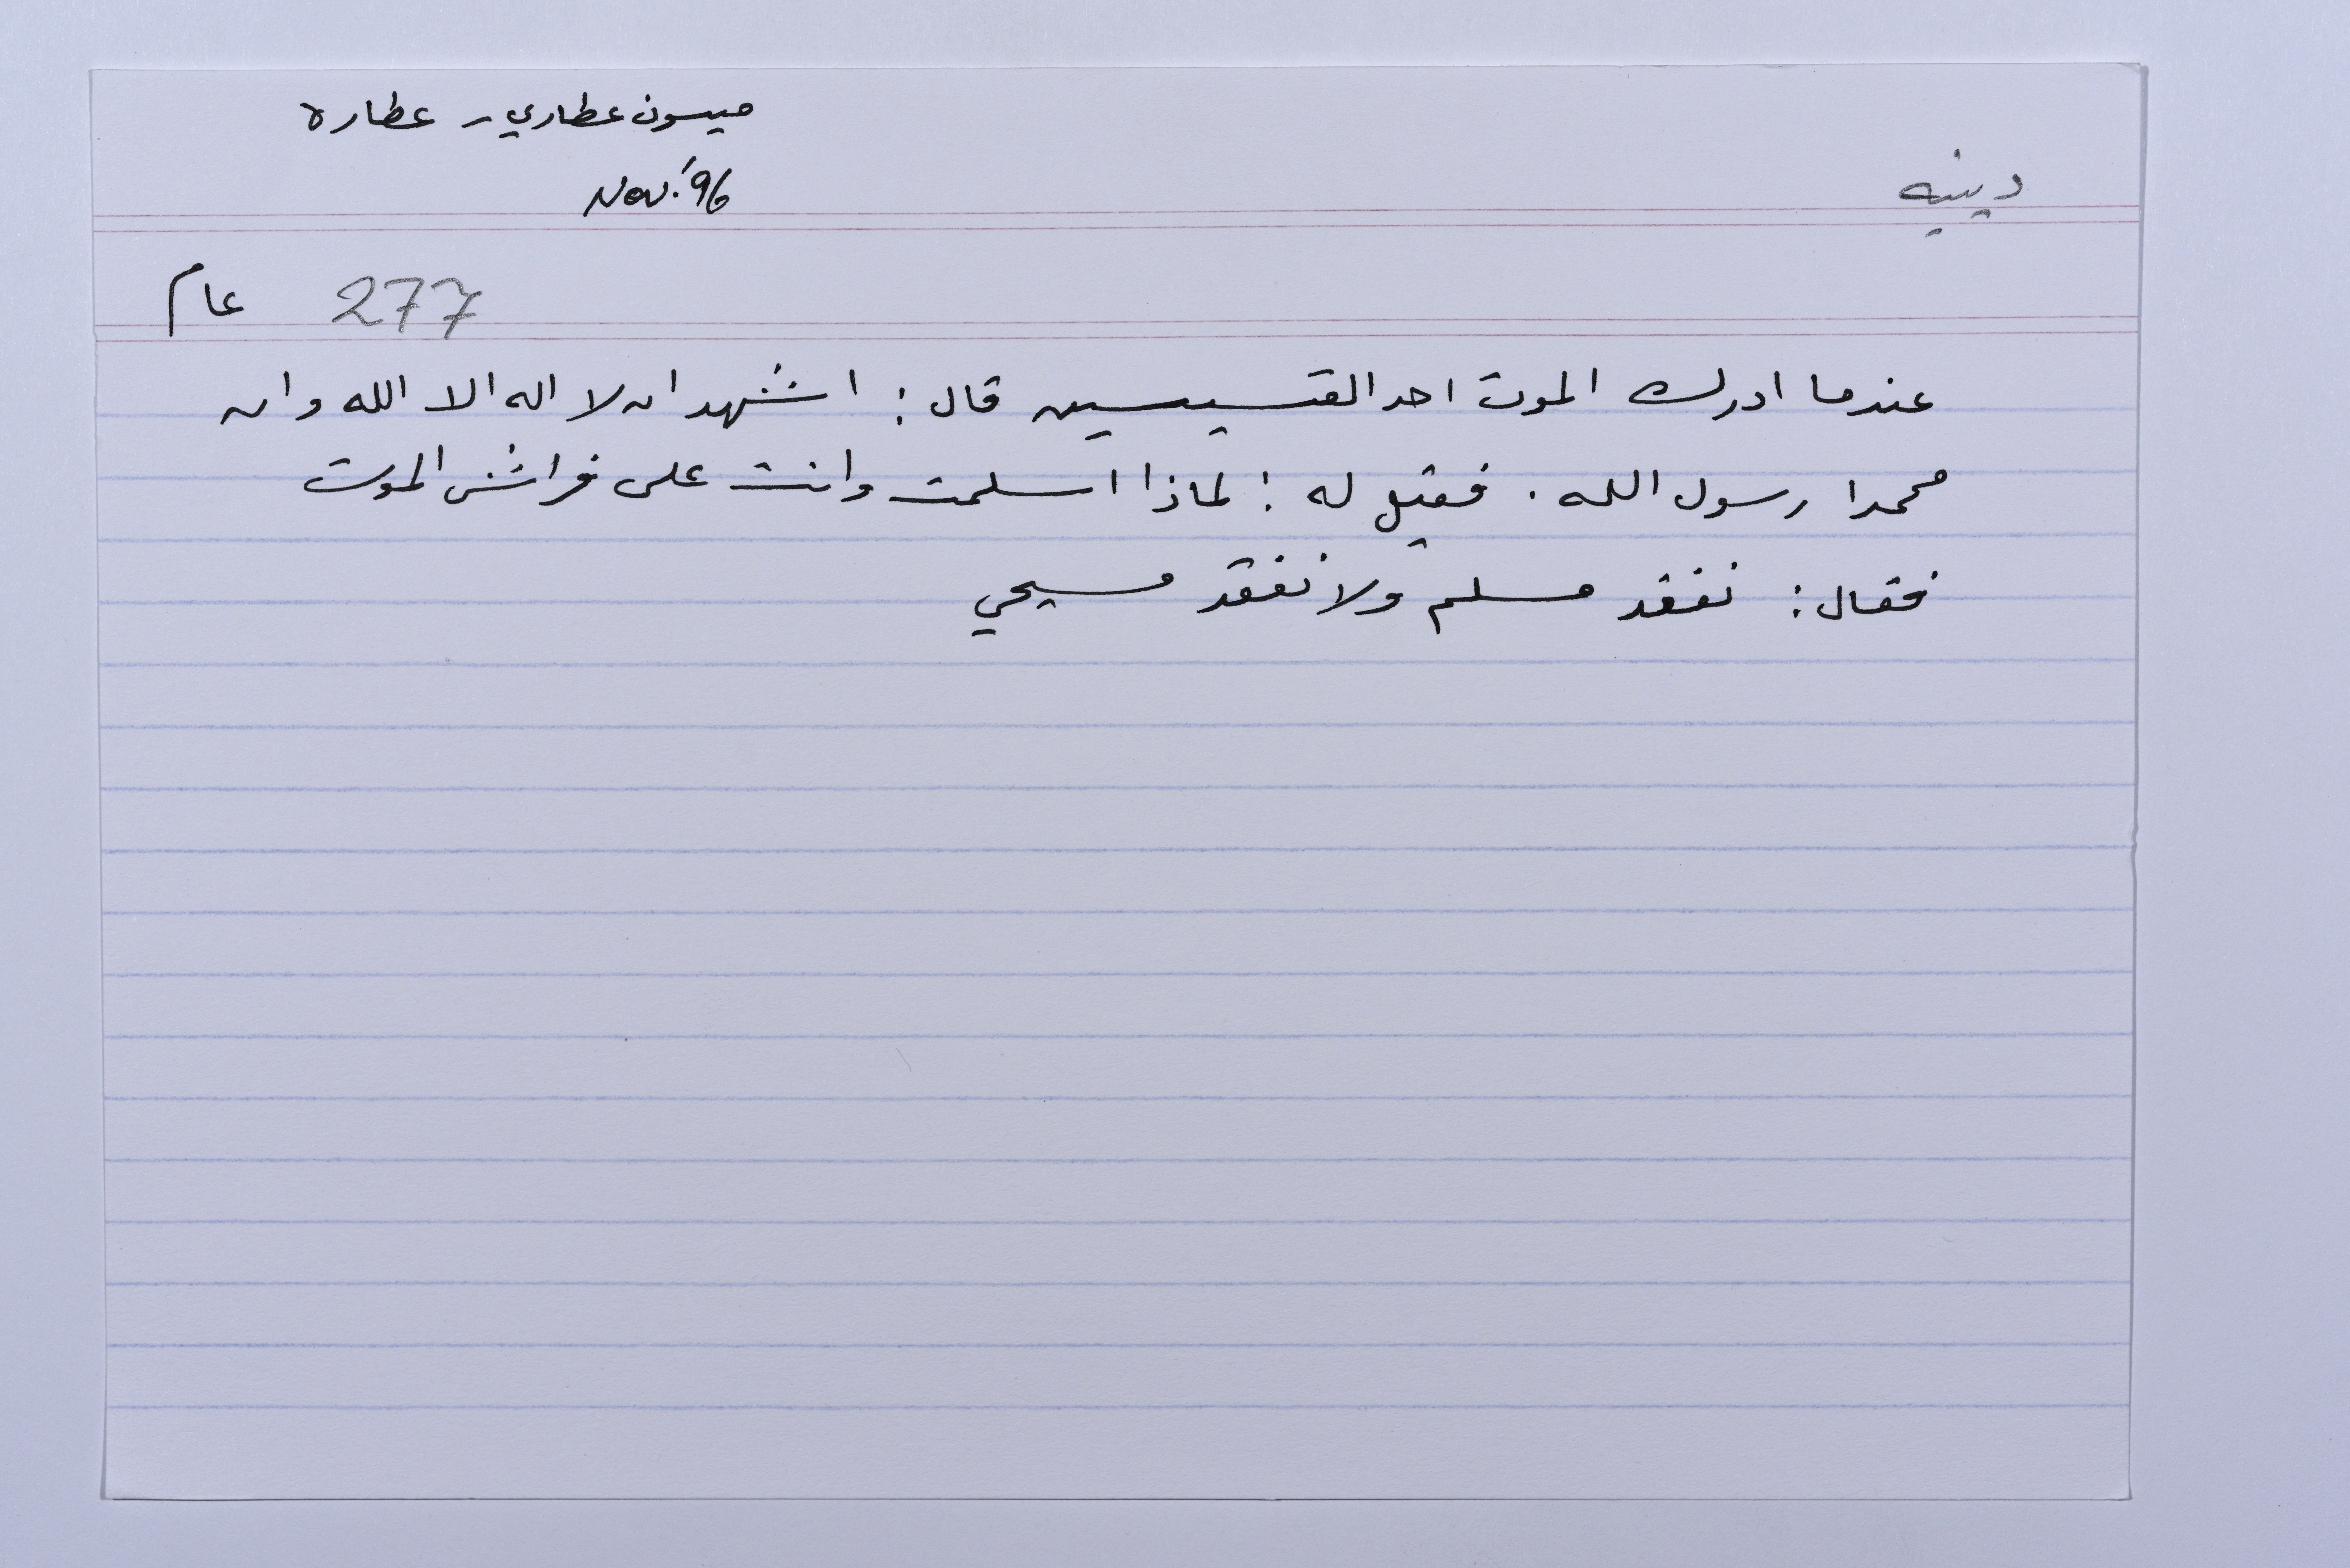 ميسون عطاري - عطاره
دينيه
Nov. '96
277 عام
عندما ادرك الموت احد القسيسين قال : اشهد ان لا اله الا الله وان
محمدا رسول الله . فقيل له : لماذا اسلمت وانت على فراش الموت
فقال : نفقد مسلم ولا نفقد مسيحي